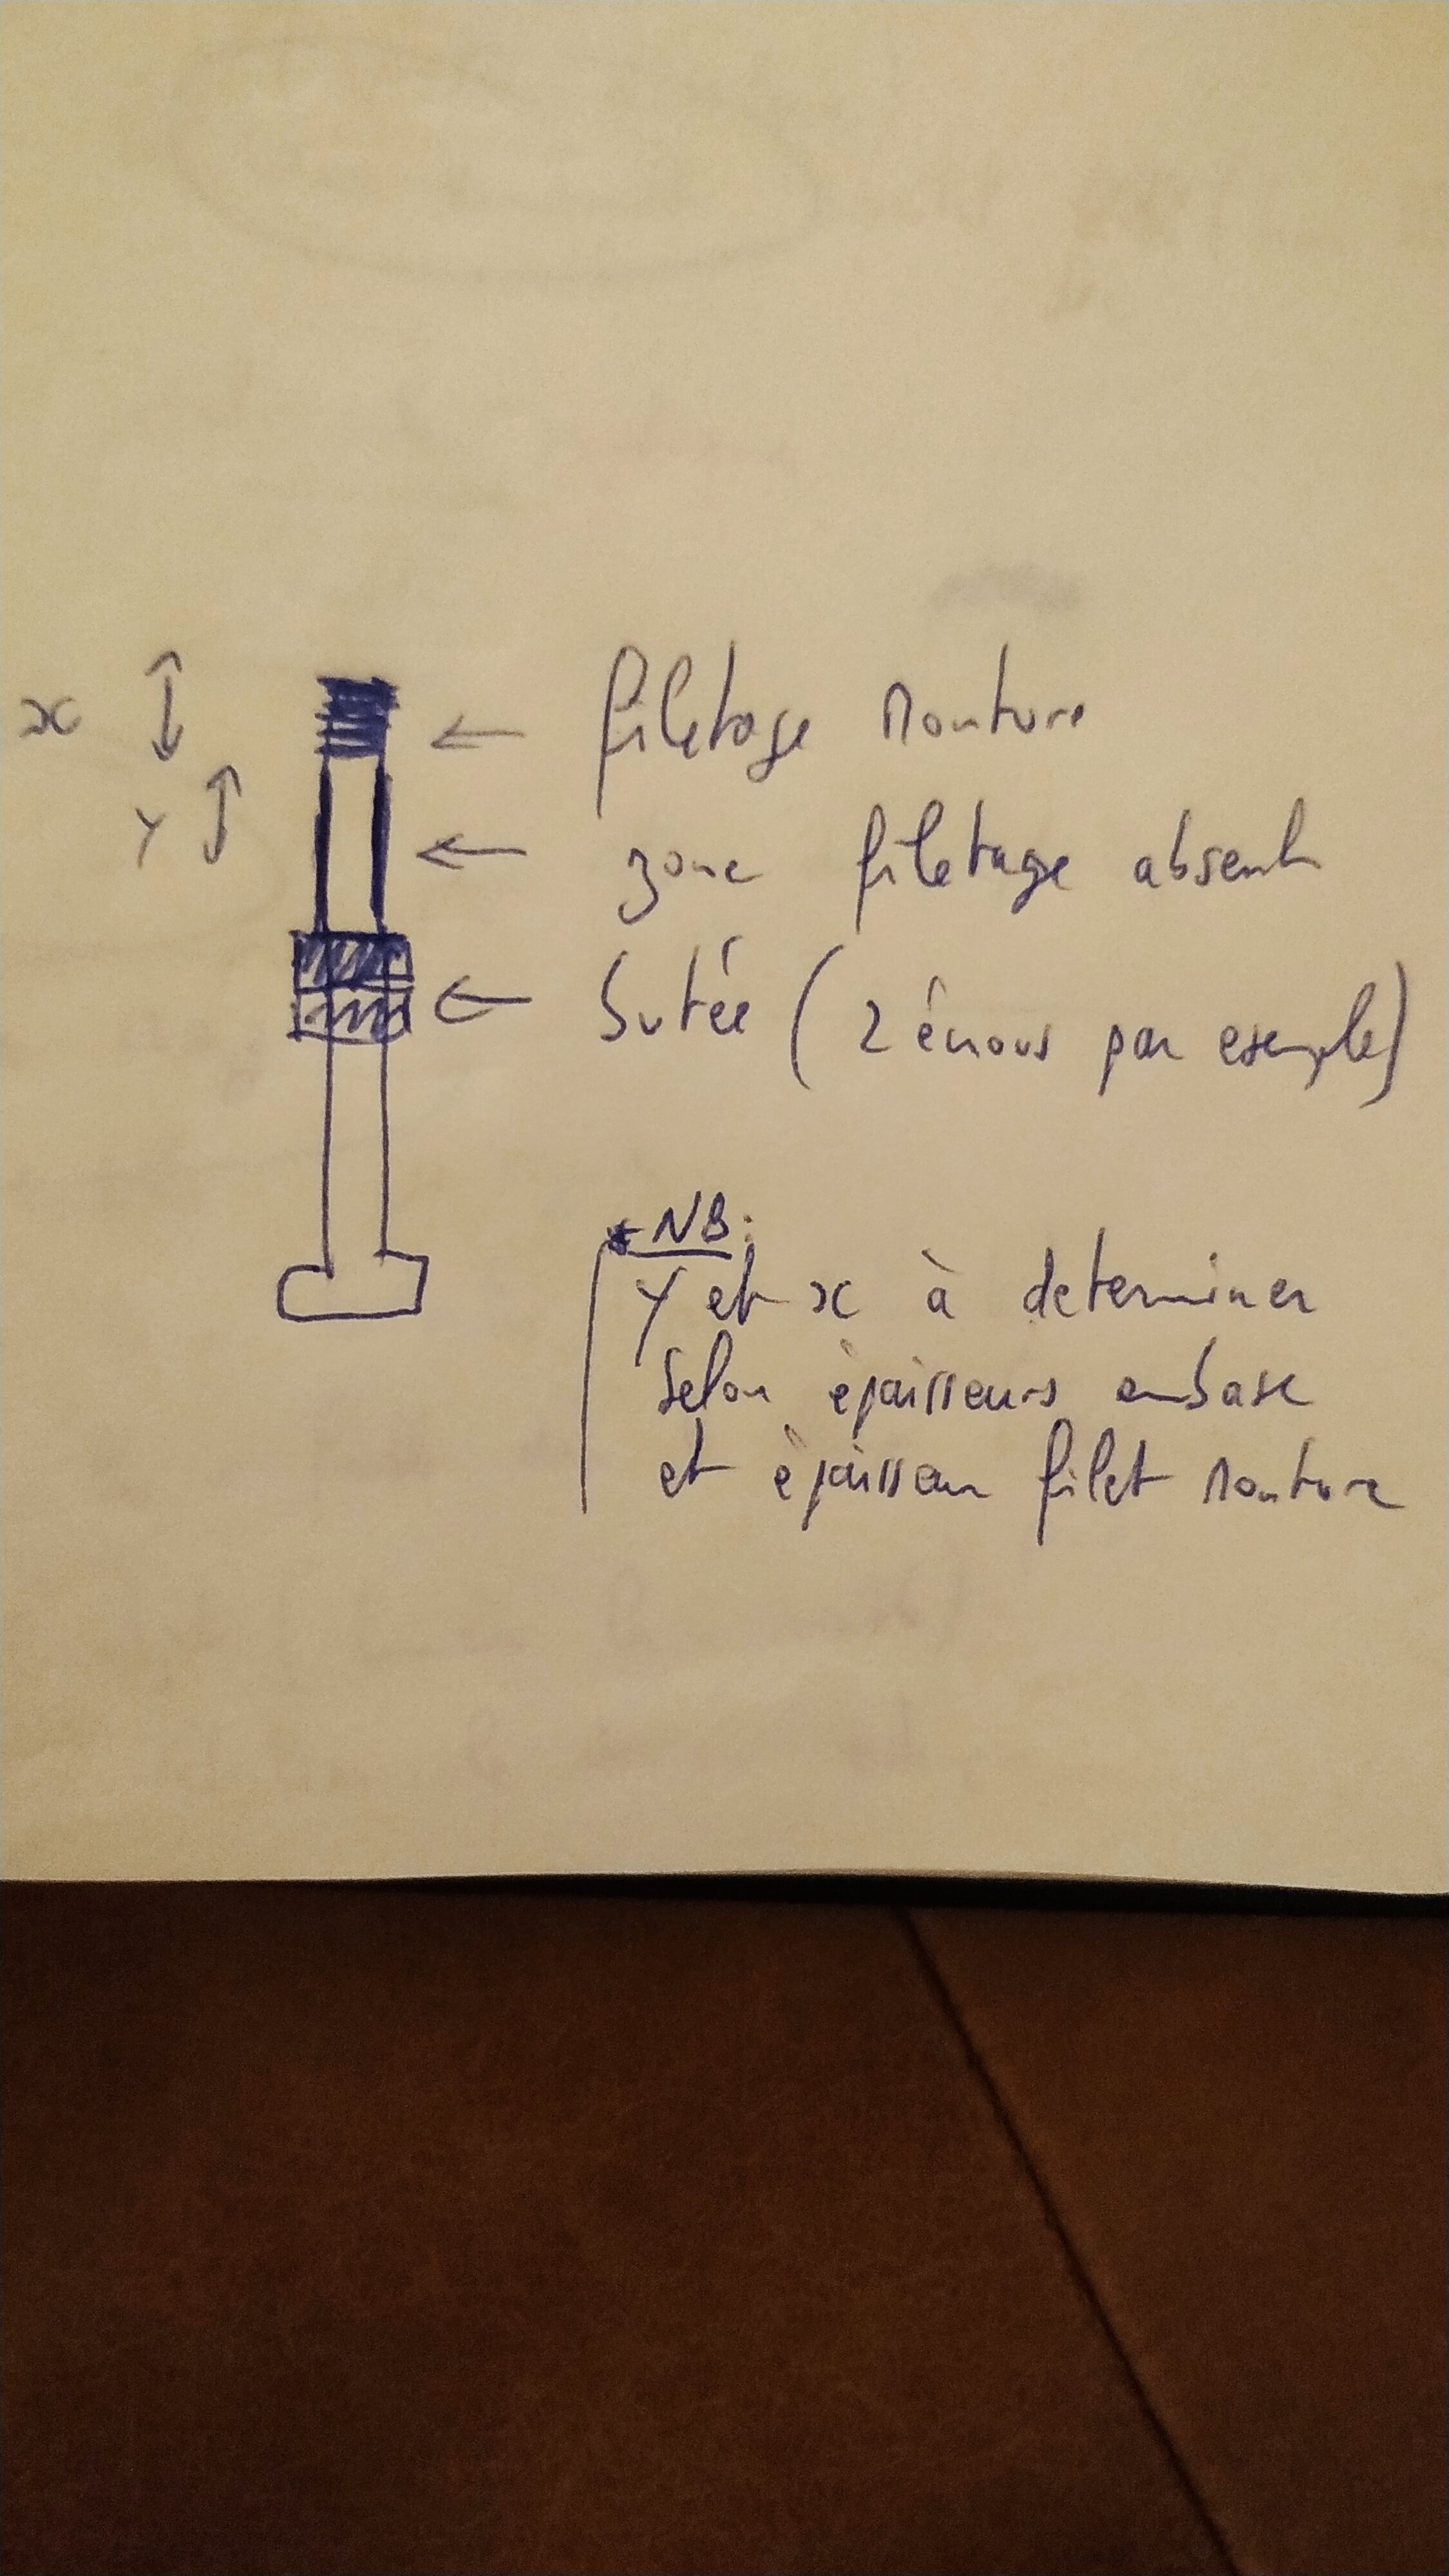 x
filetage Monture
Y
zone filetage absent
butée (2 écrous par exemple)
* NB:
Y et x à determiner
selon épaisseurs embase
et épaisseur filet Monture